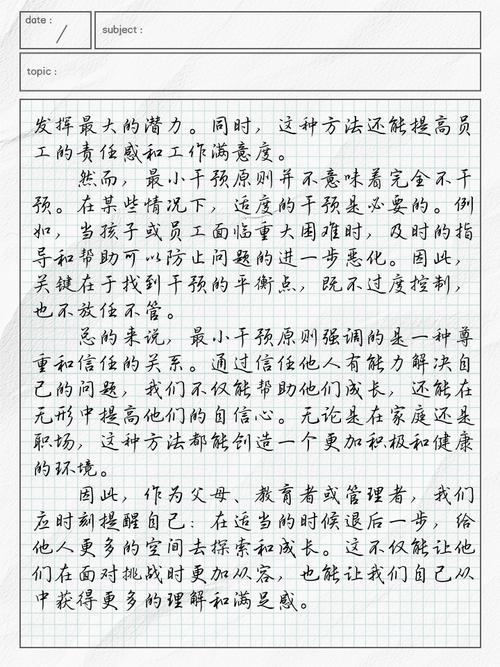 date :
subject :
topic :
发挥最大的潜力。同时，这种方法还能提高员
工的责任感和工作满意度。
然而，最小干预原则并不意味着完全不干
预。在某些情况下，适度的干预是必要的。例
如，当孩子或员工面临重大困难时，及时的指
导和帮助可以防止问题的进一步恶化。因此，
关键在于找到干预的平衡点，既不过度控制，
也不放任不管。
总的来说，最小干预原则强调的是一种尊
重和信任的关系。通过信任他人有能力解决自
己的问题，我们不仅能帮助他们成长，还能在
无形中提高他们的自信心。无论是在家庭还是
职场，这种方法都能创造一个更加积极和健康
的环境。
因此，作为父母、教育者或管理者，我们
应时刻提醒自己：在适当的时候退后一步，给
他人更多的空间去探索和成长。这不仅能让他
们在面对挑战时更加从容，也能让我们自己从
中获得更多的理解和满足感。